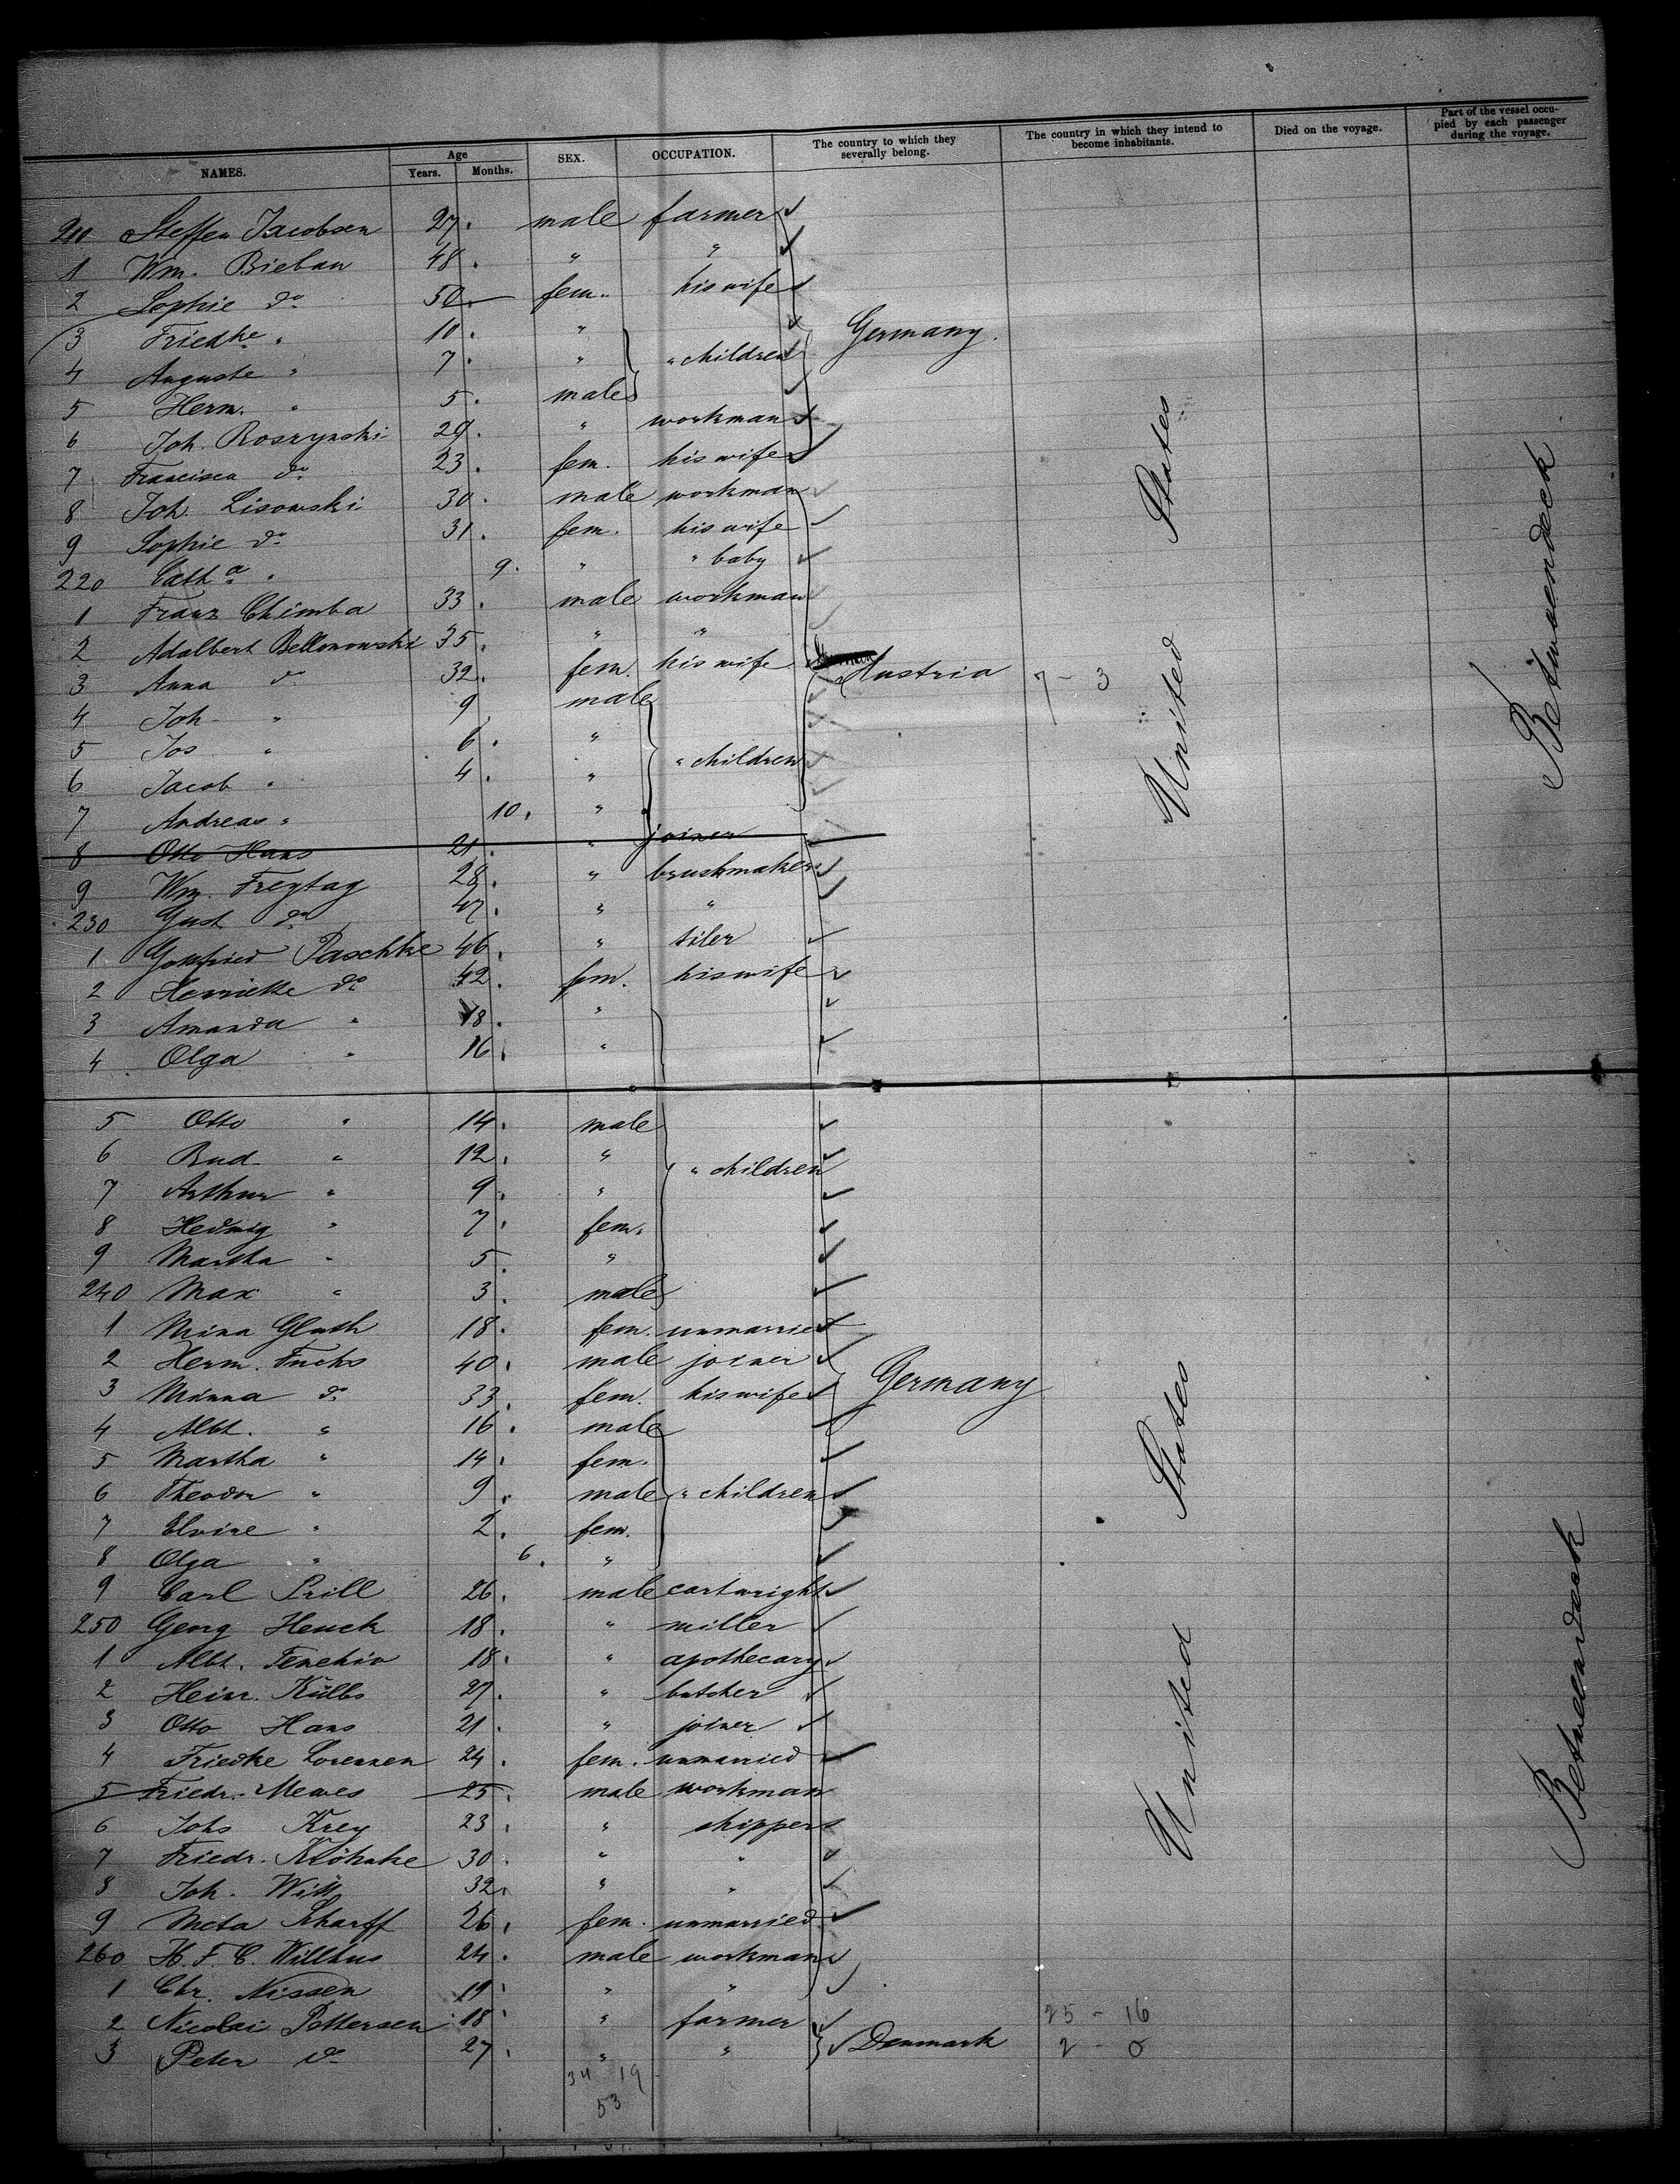 NAMES. Age Years. Months. SEX. OCCUPATION. The country to which they severally belong. The country in which they intend to become inhabitants. Died on the voyage. Part of the vessel occupied by each passenger during the voyage.
210 Steffen Jacobsen 27. male farmer
1 Wm. Bieban 48. " "
2 Sophie do 50. fem. his wife
3 Friedke " 10. "
4 Auguste " 7. " " children Germany.
5 Herm. " 5. male
6 Joh. Roszynski 29. " workman
7 Francisca do 23. fem. his wife
8 Joh. Lisowski 30. male workman
9 Sophie do 31. fem. his wife
220 Catha " 9. " " baby
1 Franz Chimba 33. male workman
2 Adalbert Bellonowski 35. " "
3 Anna do 32. fem. his wife Austria 7 - 3
4 Joh " 9 male
5 Jos " 6. "
6 Jacob " 4. " " children
7 Andreas " 10. "
8 Otto Hans 21. " joiner
9 Wm. Freytag 28. " brushmaker
230 Gust do 47. " "
1 Gottfried Paschke 46. " tiler
2 Henriette do 42. fem. his wife
3 Amanda " 18. "
4 Olga " 16. "
5 Otto " 14. male
6 Rud. " 12. " " children
7 Arthur " 9. "
8 Hedwig " 7. fem.
9 Martha " 5. "
240 Max " 3. male
1 Mina Gluth 18. fem. unmarried
2 Herm. Fuchs 40. male joiner
3 Minna do 33. fem. his wife Germany
4 Albt. " 16. male
5 Martha " 14. fem.
6 Theodor " 9. male " children
7 Elvine " 2. fem.
8 Olga " 6. "
9 Carl Prill 26. male cartwright
250 Georg Henck 18. " miller
1 Albt. 18. " apothecary
2 Heinr. Külbs 27. " butcher
3 Otto Hans 21. " joiner
4 Friedke Lorenzen 24. fem. unmarried
5 Friedr. Mewes 25. male workman
6 Johs Krey 23. " shipper
7 Friedr. Klöhnke 30. " "
8 Joh. Witt 32. " "
9 Meta Scharff 26. fem. unmarried
260 H. F. C. 24. male workman
1 Chr. Nissen 19. " "
2 Nicolai Pettersen 18. " farmer 25 - 16
3 Peter do 27. " " Denmark 2 - 0
34 19
53
United States
Betweendeck
United States
Betweendeck